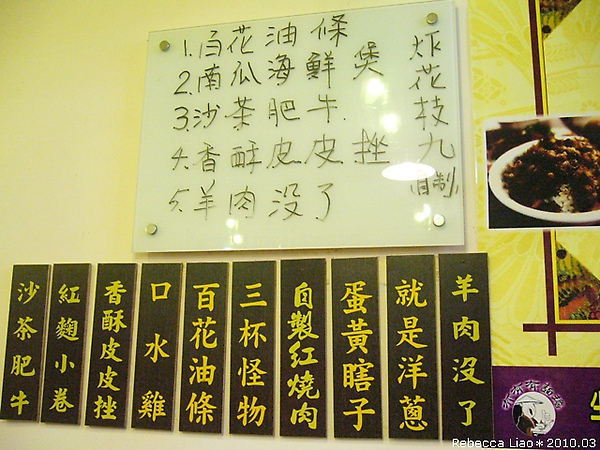 1.百花油條
2.南瓜海鮮煲
3.沙茶肥牛.
4.香酥皮皮挫
5.羊肉没了
炸花枝丸
(自制)
沙茶肥牛
紅麴小卷
香酥皮皮挫
口水雞
百花油條
三杯怪物
自製紅燒肉
蛋黃瞎子
就是洋蔥
羊肉沒了
Rebecca Liao*2010.03